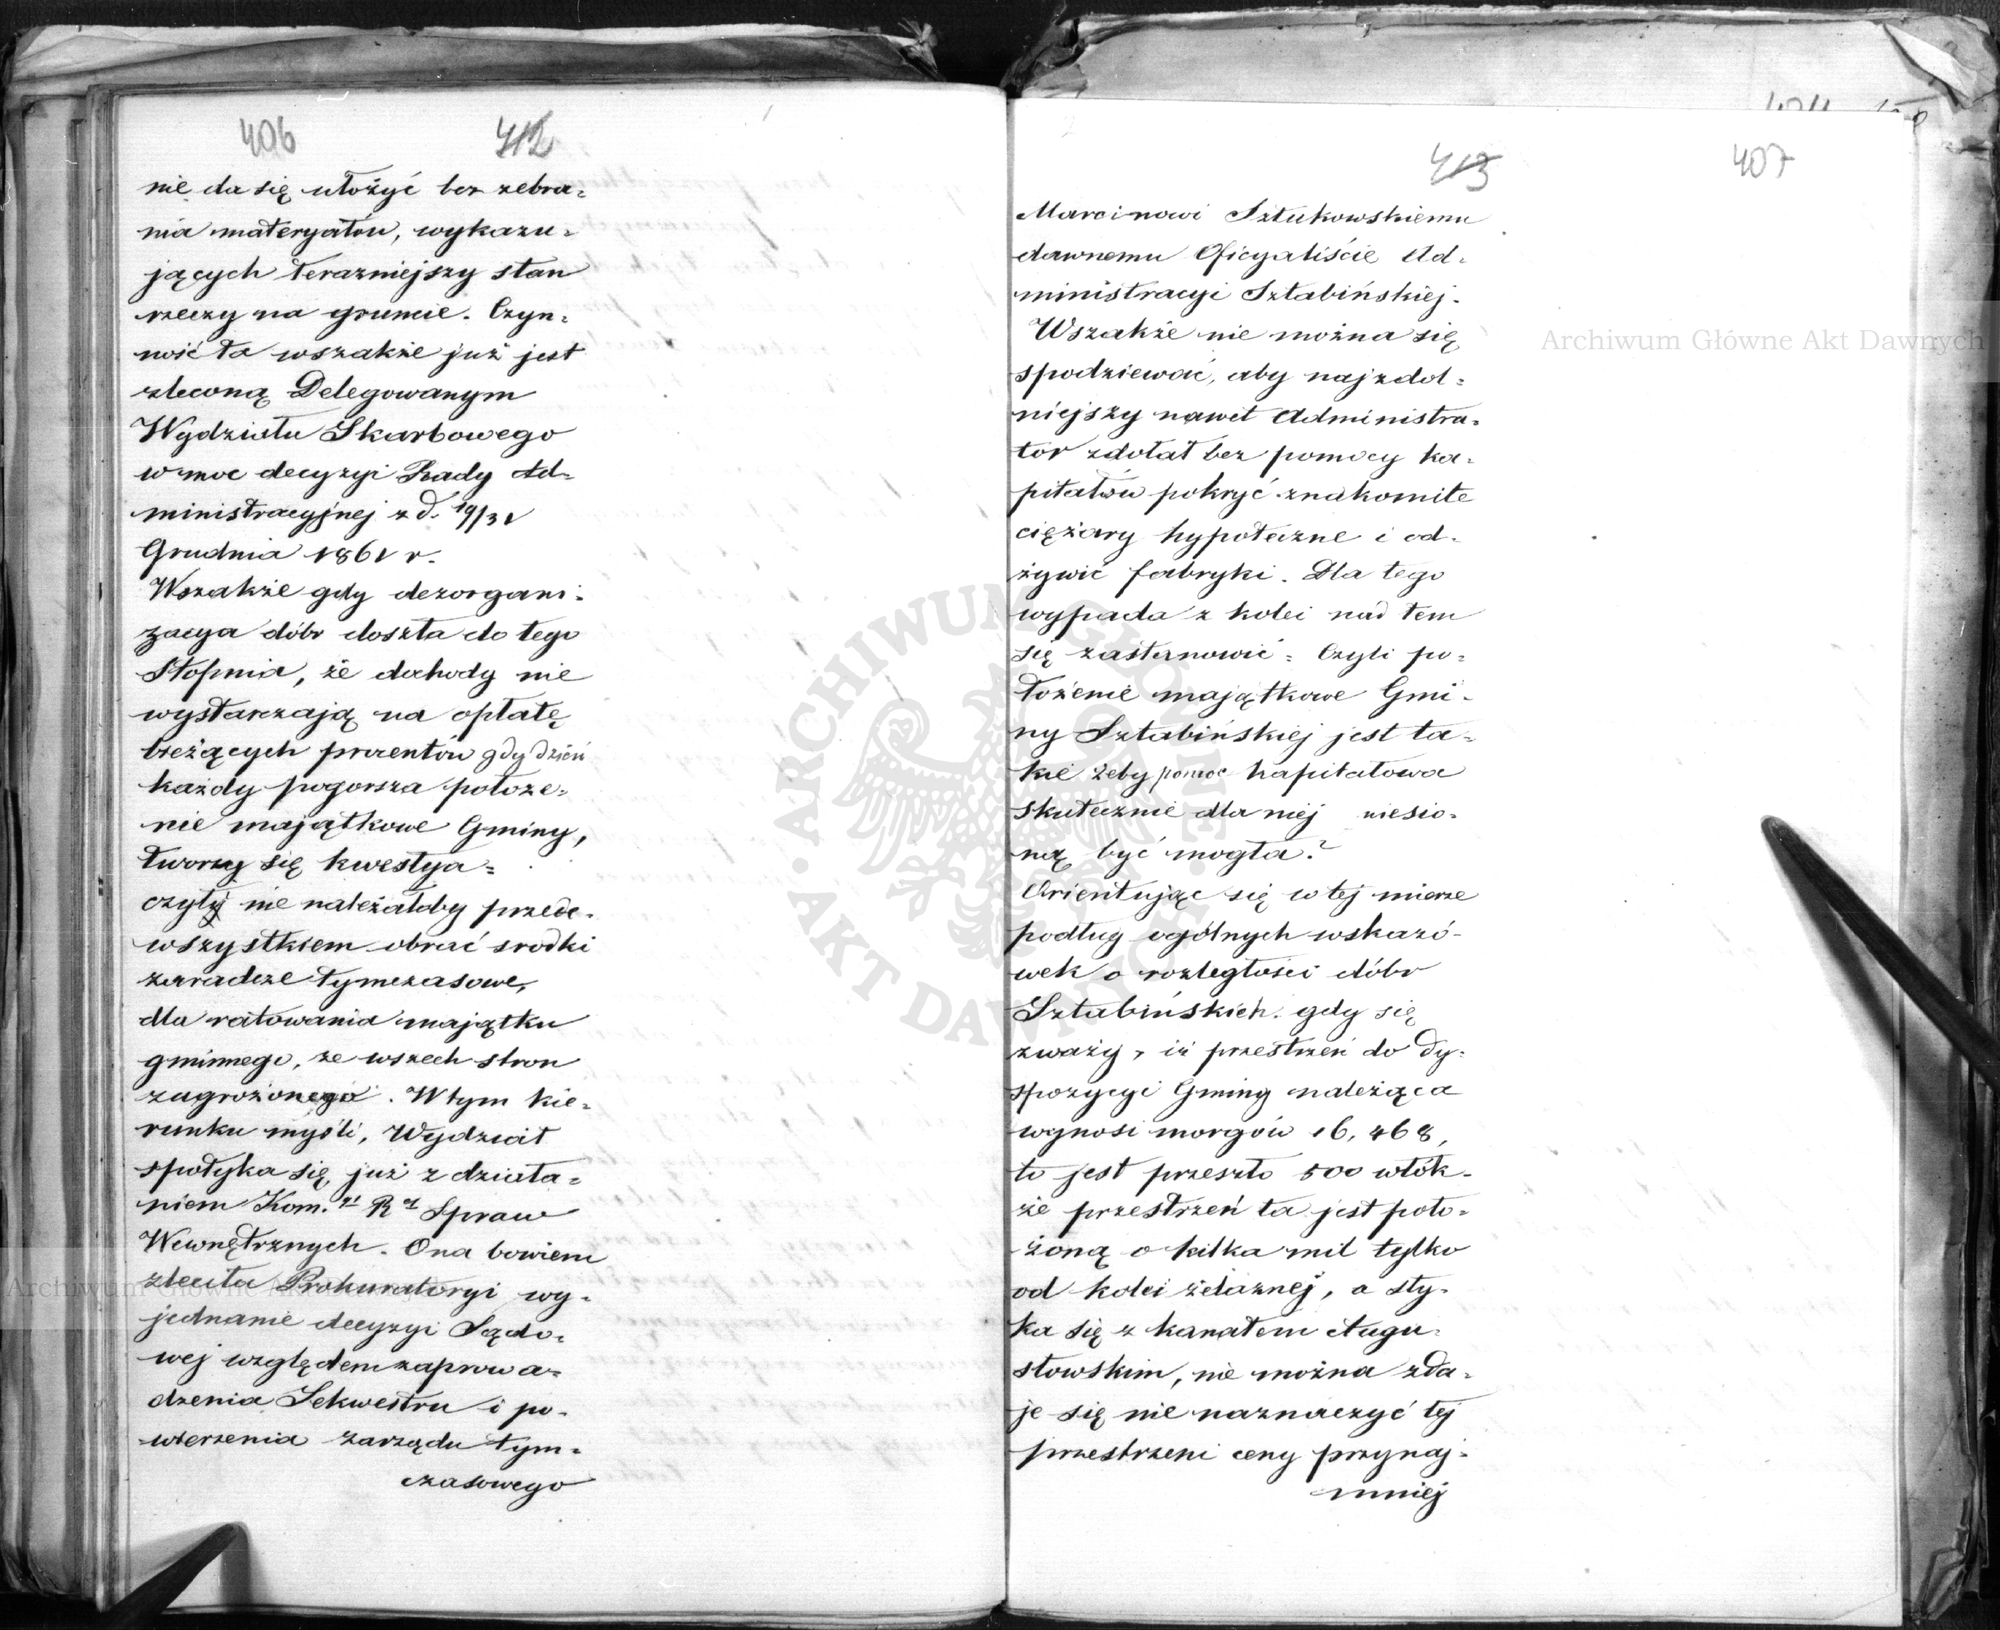 406
412
nie da się ułożyć bez zebra=
nia materyałów, wykazu=
jących teraźniejszy stan
rzeczy na gruncie. Czyn=
ność ta wszakże już jest
zleconą Delegowanym
Wydziału Skarbowego
w moc decyzyi Rady Ad=
ministracyjnej z d. 19/31
Grudnia 1861 r.
Wszakże gdy dezorgani=
zacya dóbr doszła do tego
stopnia, że dochody nie
wystarczają na opłatę
bieżących procentów gdy dzień
każdy pogorsza położe=
nie majątkowe Gminy,
tworzy się kwestya=
czyly nie należałoby przede=
wszystkiem obrać srodki
zaradcze tymczasowe,
dla ratowania majątku
gminnego, ze wszech stron
zagrożonego. W tym kie=
runku myśli, Wydział
spotyka się już z działa=
niem Kom. Rz Spraw
Wewnętrznych. Ona bowiem
zleciła Prokuratoryi wy=
jednanie decyzyi Sądo=
wej względem zaprowa=
dzenia Sekwestru i po=
wierzenia zarządu tym=
czasowego
413
407
Marcinowi Sztukowskiemu
dawnemu Oficyaliście Ad=
ministracyi Sztabińskiej.
Wszakże nie można się
spodziewać, aby najzdol=
niejszy nawet Administra=
tor zdołał bez pomocy ka=
pitałów pokryć znakomite
ciężary hypoteczne i od=
żywić fabryki. Dla tego
wypada z kolei nad tem
się zastanowić = Czyli po=
łożenie majątkowe Gmi=
ny Sztabińskiej jest ta=
kie żeby pomoc kapitałowa
skutecznie dla niej niesio=
ną być mogła?
Orientując się w tej mierze
podług ogólnych wskazó=
wek o rozległości dóbr
Sztabińskich. gdy się
zważy, iż przestrzeń do dy=
spozycyi Gminy należąca
wynosi morgów 16,468,
to jest przeszło 500 włók=
że przestrzeń ta jest poło=
żoną o kilka mil tylko
od kolei żelaznej, a sty=
ka się z kanałem Augu=
stowskim, nie można zda=
je się nie naznaczyć tej
przestrzeni ceny przynaj=
mniej
Archiwum Główne Akt Dawnych
Archiwum Główne Akt Dawnych
ARCHIWUM GŁÓWNE AKT DAWNYCH